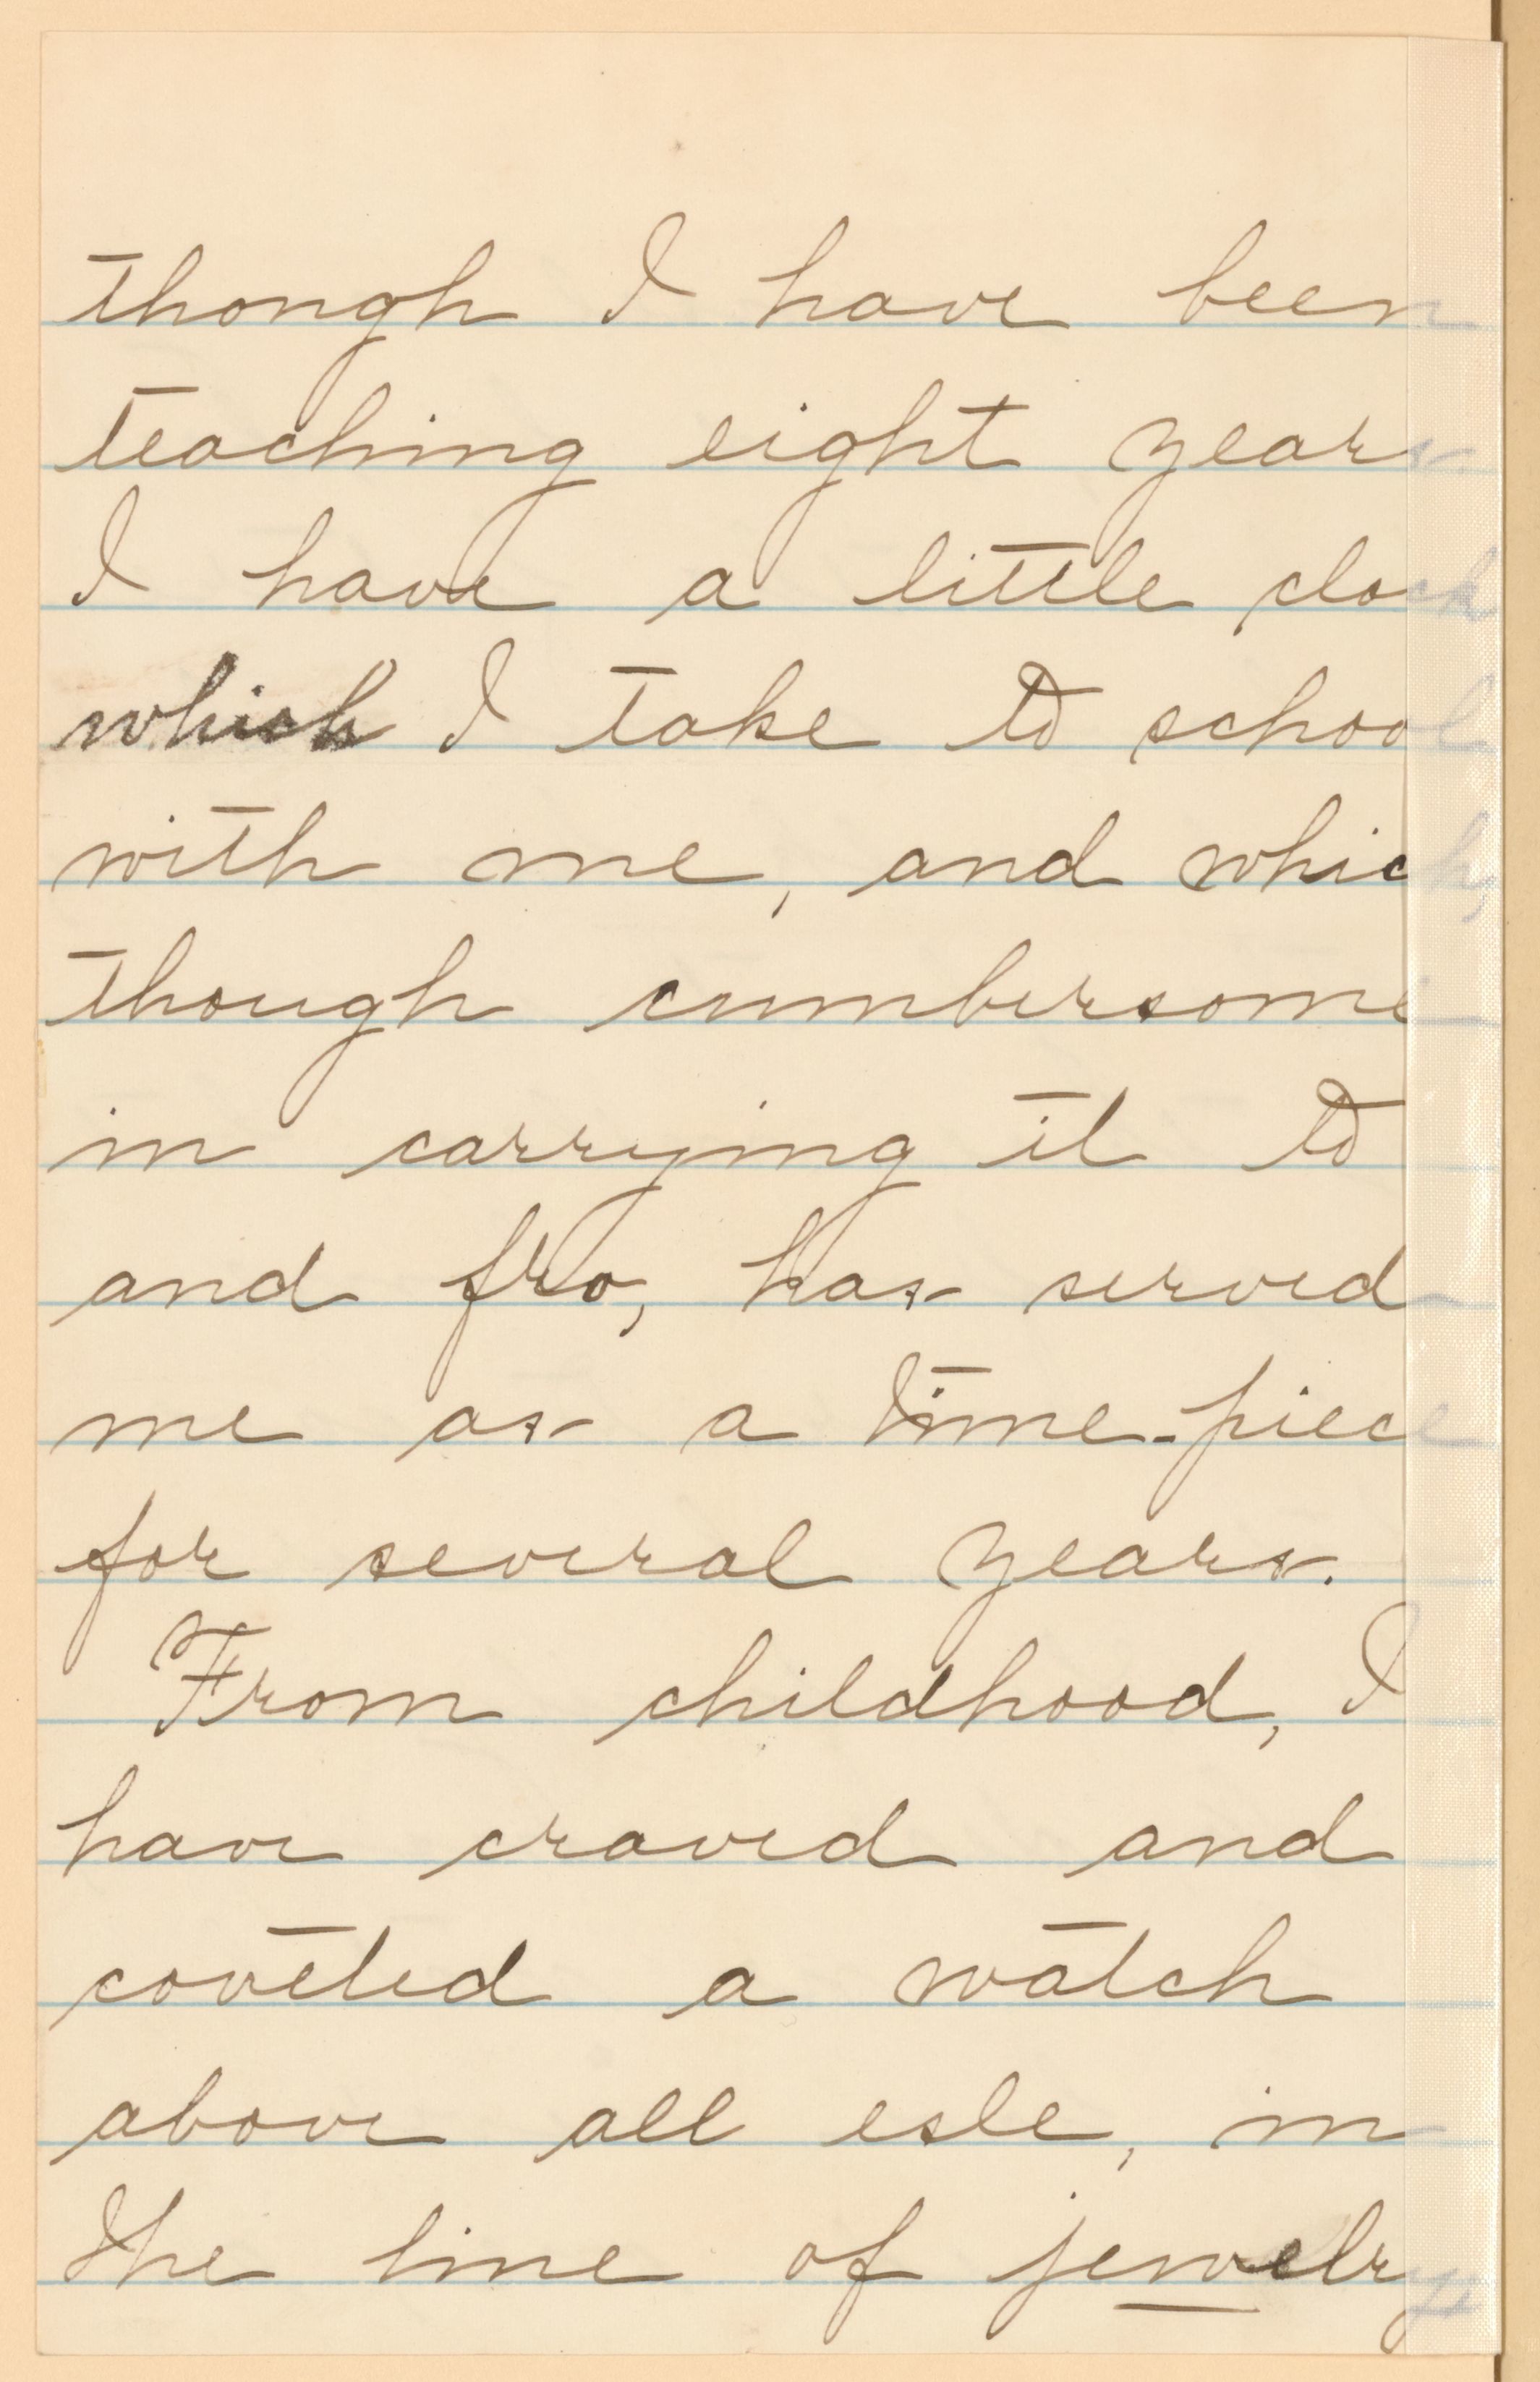 though I have been
teaching eight years
I have a little clock
which I take to school
with me, and which,
though cumbersome
in carrying it to
and fro, has served
me as a time-piece
for several years.
From childhood, I
have craved and
coveted a watch
above all esle, in
the line of jewelry